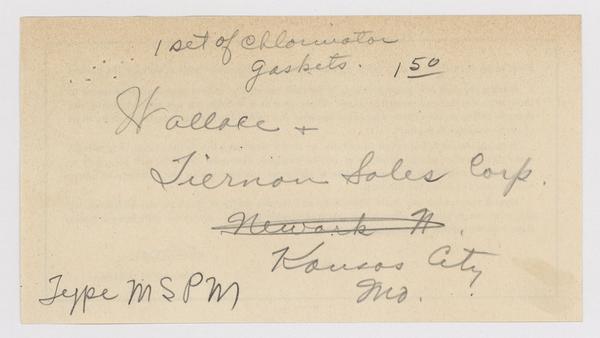 1 set of Chlorinator
gaskets. 1 50
Wallace +
Tiernan Sales Corp.
Newark N.
Kansas City
Mo.
Type MSPM